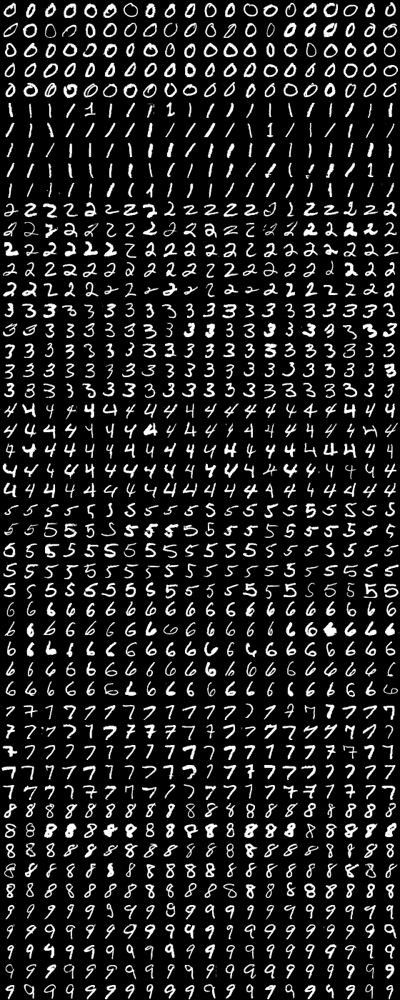 0 0 0 0 0 0 0 0 0 0 0 0 0 0 0 0 0 0 0 0
0 0 0 0 0 0 0 0 0 0 0 0 0 0 0 0 0 0 0 0
0 0 0 0 0 0 0 0 0 0 0 0 0 0 0 0 0 0 0 0
0 0 0 0 0 0 0 0 0 0 0 0 0 0 0 0 0 0 0 0
0 0 0 0 0 0 0 0 0 0 0 0 0 0 0 0 0 0 0 0
1 1 1 1 1 1 1 1 1 1 1 1 1 1 1 1 1 1 1 1
1 1 1 1 1 1 1 1 1 1 1 1 1 1 1 1 1 1 1 1
1 1 1 1 1 1 1 1 1 1 1 1 1 1 1 1 1 1 1 1
1 1 1 1 1 1 1 1 1 1 1 1 1 1 1 1 1 1 1 1
1 1 1 1 1 1 1 1 1 1 1 1 1 1 1 1 1 1 1 1
2 2 2 2 2 2 2 2 2 2 2 2 2 2 2 2 2 2 2 2
2 2 2 2 2 2 2 2 2 2 2 2 2 2 2 2 2 2 2 2
2 2 2 2 2 2 2 2 2 2 2 2 2 2 2 2 2 2 2 2
2 2 2 2 2 2 2 2 2 2 2 2 2 2 2 2 2 2 2 2
2 2 2 2 2 2 2 2 2 2 2 2 2 2 2 2 2 2 2 2
3 3 3 3 3 3 3 3 3 3 3 3 3 3 3 3 3 3 3 3
3 3 3 3 3 3 3 3 3 3 3 3 3 3 3 3 3 3 3 3
3 3 3 3 3 3 3 3 3 3 3 3 3 3 3 3 3 3 3 3
3 3 3 3 3 3 3 3 3 3 3 3 3 3 3 3 3 3 3 3
3 3 3 3 3 3 3 3 3 3 3 3 3 3 3 3 3 3 3 3
4 4 4 4 4 4 4 4 4 4 4 4 4 4 4 4 4 4 4 4
4 4 4 4 4 4 4 4 4 4 4 4 4 4 4 4 4 4 4 4
4 4 4 4 4 4 4 4 4 4 4 4 4 4 4 4 4 4 4 4
4 4 4 4 4 4 4 4 4 4 4 4 4 4 4 4 4 4 4 4
4 4 4 4 4 4 4 4 4 4 4 4 4 4 4 4 4 4 4 4
5 5 5 5 5 5 5 5 5 5 5 5 5 5 5 5 5 5 5 5
5 5 5 5 5 5 5 5 5 5 5 5 5 5 5 5 5 5 5 5
5 5 5 5 5 5 5 5 5 5 5 5 5 5 5 5 5 5 5 5
5 5 5 5 5 5 5 5 5 5 5 5 5 5 5 5 5 5 5 5
5 5 5 5 5 5 5 5 5 5 5 5 5 5 5 5 5 5 5 5
6 6 6 6 6 6 6 6 6 6 6 6 6 6 6 6 6 6 6 6
6 6 6 6 6 6 6 6 6 6 6 6 6 6 6 6 6 6 6 6
6 6 6 6 6 6 6 6 6 6 6 6 6 6 6 6 6 6 6 6
6 6 6 6 6 6 6 6 6 6 6 6 6 6 6 6 6 6 6 6
6 6 6 6 6 6 6 6 6 6 6 6 6 6 6 6 6 6 6 6
7 7 7 7 7 7 7 7 7 7 7 7 7 7 7 7 7 7 7 7
7 7 7 7 7 7 7 7 7 7 7 7 7 7 7 7 7 7 7 7
7 7 7 7 7 7 7 7 7 7 7 7 7 7 7 7 7 7 7 7
7 7 7 7 7 7 7 7 7 7 7 7 7 7 7 7 7 7 7 7
7 7 7 7 7 7 7 7 7 7 7 7 7 7 7 7 7 7 7 7
8 8 8 8 8 8 8 8 8 8 8 8 8 8 8 8 8 8 8 8
8 8 8 8 8 8 8 8 8 8 8 8 8 8 8 8 8 8 8 8
8 8 8 8 8 8 8 8 8 8 8 8 8 8 8 8 8 8 8 8
8 8 8 8 8 8 8 8 8 8 8 8 8 8 8 8 8 8 8 8
8 8 8 8 8 8 8 8 8 8 8 8 8 8 8 8 8 8 8 8
9 9 9 9 9 9 9 9 9 9 9 9 9 9 9 9 9 9 9 9
9 9 9 9 9 9 9 9 9 9 9 9 9 9 9 9 9 9 9 9
9 9 9 9 9 9 9 9 9 9 9 9 9 9 9 9 9 9 9 9
9 9 9 9 9 9 9 9 9 9 9 9 9 9 9 9 9 9 9 9
9 9 9 9 9 9 9 9 9 9 9 9 9 9 9 9 9 9 9 9